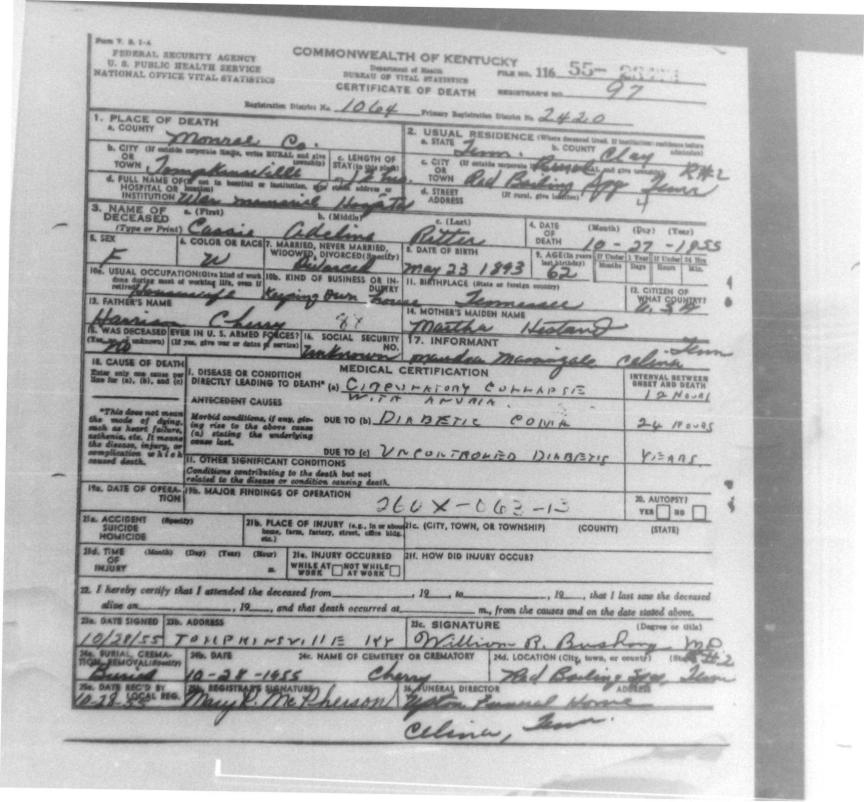 Form V. S. 1-A
FEDERAL SECURITY AGENCY
U. S. PUBLIC HEALTH SERVICE
NATIONAL OFFICE VITAL STATISTICS
COMMONWEALTH OF KENTUCKY
Department of Health
BUREAU OF VITAL STATISTICS
CERTIFICATE OF DEATH
FILE NO. 116 55-
REGISTRAR'S NO. 97
Registration District No. 1064 Primary Registration District No. 2420
1. PLACE OF DEATH
a. COUNTY Monroe Co.
b. CITY (If outside corporate limits, write RURAL and give township)
OR
TOWN Tompkinsville
c. LENGTH OF STAY (in this place)
d. FULL NAME OF (If not in hospital or institution, give street address or location)
HOSPITAL OR
INSTITUTION War memorial Hospital
2. USUAL RESIDENCE (Where deceased lived. If institution: residence before admission)
a. STATE Tenn. b. COUNTY Clay
c. CITY (If outside corporate limits, write RURAL and give township) R#2
OR
TOWN Red Boiling Spgs Tenn
d. STREET ADDRESS (If rural, give location)
3. NAME OF DECEASED (Type or Print)
a. (First) Cassie
b. (Middle) Adeline
c. (Last) Ritter
4. DATE OF DEATH (Month) (Day) (Year)
10-27-1955
5. SEX F
6. COLOR OR RACE W
7. MARRIED, NEVER MARRIED, WIDOWED, DIVORCED (Specify)
Divorced
8. DATE OF BIRTH
May 23 1893
9. AGE (In years last birthday) 62
If Under 1 Year Months Days
If Under 24 Hrs Hours Min.
10a. USUAL OCCUPATION (Give kind of work done during most of working life, even if retired)
Housewife
10b. KIND OF BUSINESS OR INDUSTRY
Keeping Own house
11. BIRTHPLACE (State or foreign country)
Tennessee
12. CITIZEN OF WHAT COUNTRY?
U.S.A
13. FATHER'S NAME
Harrison Cherry
14. MOTHER'S MAIDEN NAME
Martha
15. WAS DECEASED EVER IN U. S. ARMED FORCES?
(Yes, no, or unknown) (If yes, give war or dates of service)
No
16. SOCIAL SECURITY NO.
Unknown
17. INFORMANT
Celina Tenn
18. CAUSE OF DEATH
Enter only one cause per line for (a), (b), and (c)
*This does not mean the mode of dying, such as heart failure, asthenia, etc. It means the disease, injury, or complication which caused death.
MEDICAL CERTIFICATION
INTERVAL BETWEEN ONSET AND DEATH
I. DISEASE OR CONDITION DIRECTLY LEADING TO DEATH* (a) CIRCULATORY COLLAPSE WITH ANURIA 12 HOURS
ANTECEDENT CAUSES
Morbid conditions, if any, giving rise to the above cause (a) stating the underlying cause last.
DUE TO (b) DIABETIC COMA 24 HOURS
DUE TO (c) UNCONTROLED DIABETES YEARS
II. OTHER SIGNIFICANT CONDITIONS
Conditions contributing to the death but not related to the disease or condition causing death.
19a. DATE OF OPERATION
19b. MAJOR FINDINGS OF OPERATION
260X-063-13
20. AUTOPSY?
YES NO
21a. ACCIDENT SUICIDE HOMICIDE (Specify)
21b. PLACE OF INJURY (e.g., in or about home, farm, factory, street, office bldg. etc.)
21c. (CITY, TOWN, OR TOWNSHIP) (COUNTY) (STATE)
21d. TIME OF INJURY (Month) (Day) (Year) (Hour) m.
21e. INJURY OCCURRED
WHILE AT WORK NOT WHILE AT WORK
21f. HOW DID INJURY OCCUR?
22. I hereby certify that I attended the deceased from , 19 , to , 19 , that I last saw the deceased
alive on , 19 , and that death occurred at m., from the causes and on the date stated above.
23a. DATE SIGNED 10/28/55
23b. ADDRESS TOMPKINSVILLE KY
23c. SIGNATURE (Degree or title)
William R. Bushong MD
24a. BURIAL, CREMATION, REMOVAL (Specify)
Buried
24b. DATE
10-28-1955
24c. NAME OF CEMETERY OR CREMATORY
Cherry
24d. LOCATION (City, town, or county) (State) R#2
Red Boiling Spgs, Tenn
25a. DATE REC'D BY LOCAL REG.
10-28-55
25b. REGISTRAR'S SIGNATURE
Mary R. McPherson
26. FUNERAL DIRECTOR ADDRESS
Upton Funeral Home
Celina, Tenn.